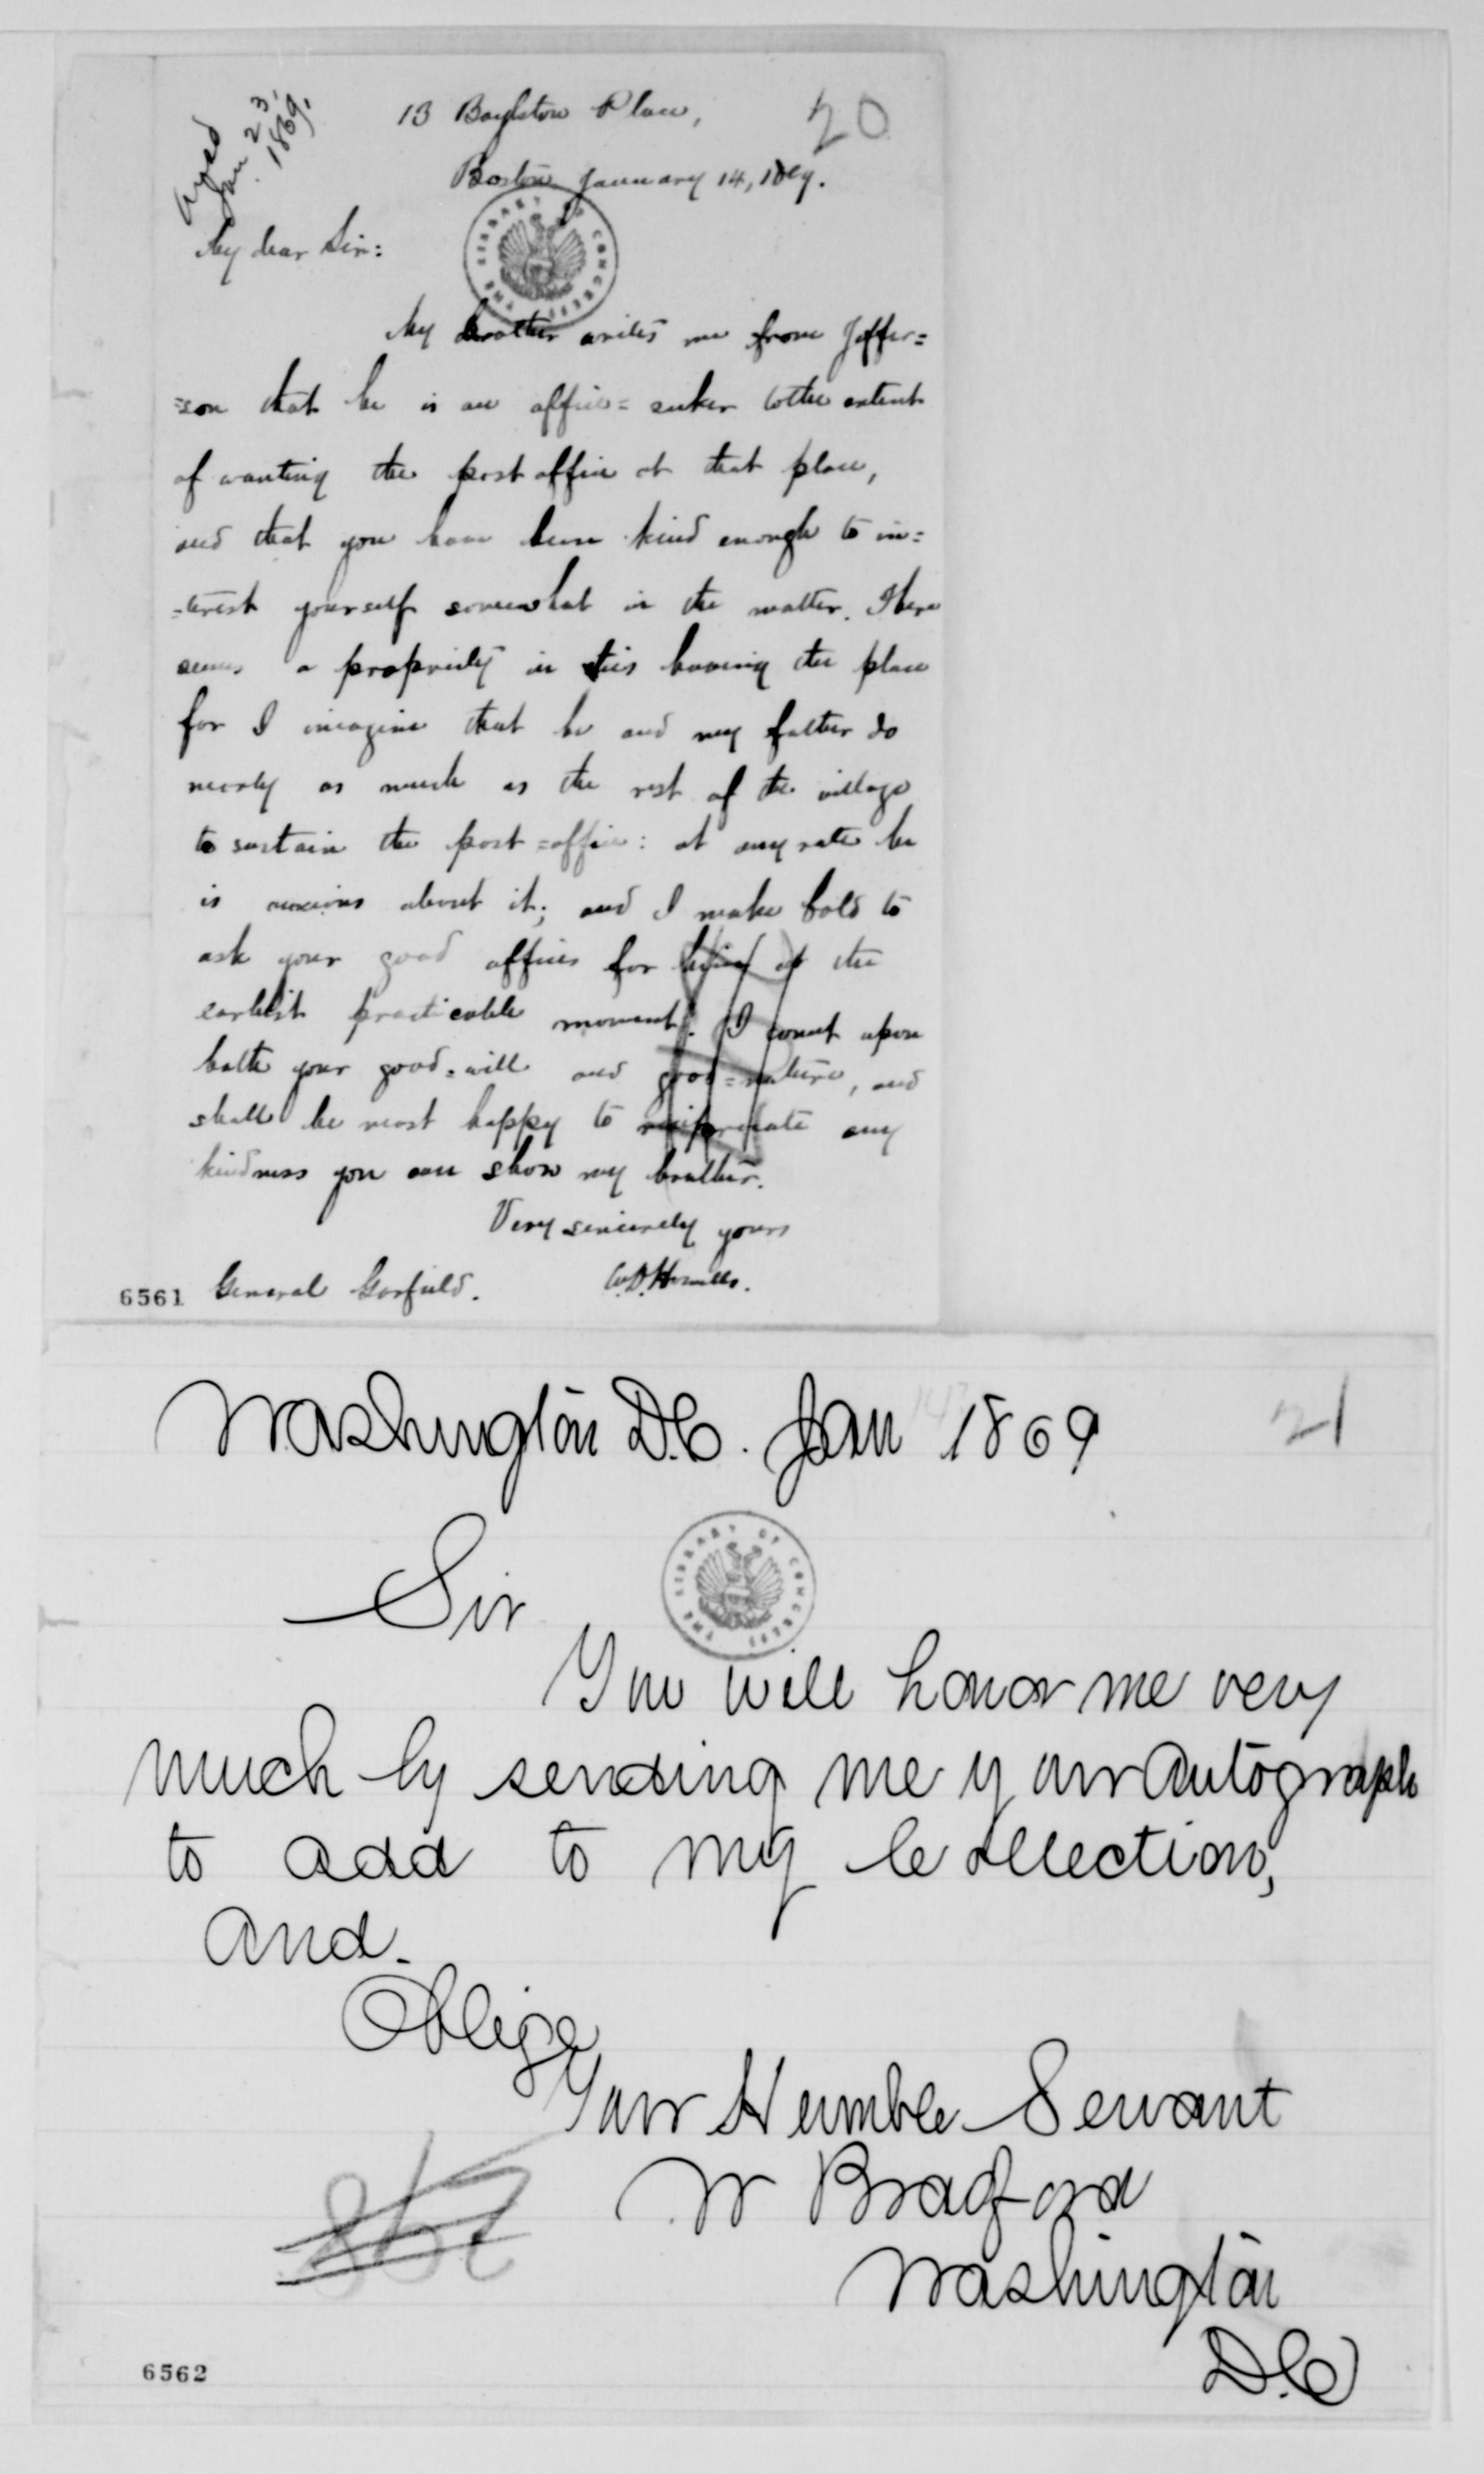 Ansd
Jan. 23,
1869.
20
13 Boylston Place,
Boston January 14, 1869.
THE LIBRARY OF CONGRESS
My dear Sir:
My brother writes me from Jeffer=
=son that he is an office=seeker to the extent
of wanting the post office at that place,
and that you have been kind enough to in=
=terest yourself somewhat in the matter. There
seems a propriety in his having the place
for I imagine that he and my father do
nearly as much as the rest of the village
to sustain the post=office: at any rate he
is anxious about it; and I make bold to
ask your good offices for him at the
earliest practicable moment. I count upon
both your good=will and good=nature, and
shall be most happy to reciprocate any
kindness you can show my brother.
Very sincerely yours
W.D. Howells.
General Garfield.
6561
Washington D.C. Jan 1869
21
Sir
THE LIBRARY OF CONGRESS
You will honor me very
much by sending me your autograph
to add to my Collection,
and
Oblige
Your Humble Servant
W Bradford
Washington
D.C
6562